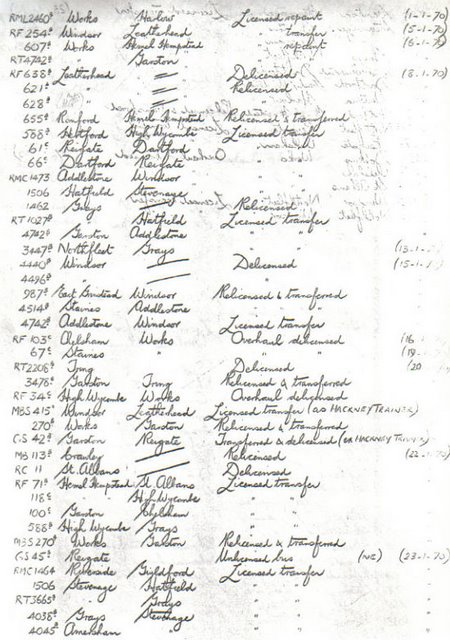 RML2460⁸ Works Harlow Licensed repaint (1-1-70)
RF 254ᵈ Windsor Leatherhead " transfer (5-1-70)
607ᵈ Works Hemel Hempstead " repaint (6-1-70)
RT4742ᵈ " Garston " "
RF 638ᵈ Leatherhead — Delicensed (8.1.70)
621ᵈ " — Relicensed
628ᵈ " — "
655ᵈ Romford Hemel Hempstead Relicensed & transferred
588ᵈ Hertford High Wycombe Licensed transfer
61ᶜ Reigate Dartford " "
66ᶜ Dartford Reigate " "
RMC1473 Addlestone Windsor " "
1506 Hatfield Stevenage " "
1462 Grays — Relicensed
RT 1027ᵈ " Hatfield Licensed transfer
4742ᵈ Garston Addlestone " "
3447ᵈ Northfleet Grays " " (13-1-
4440ᵈ Windsor — Delicensed (15-1-
4496ᵈ " — "
987ᵈ East Grinstead Windsor Relicensed & transferred
4514ᵈ Staines Addlestone " "
4742ᵈ Addlestone Windsor Licensed transfer
RF 103ᶜ Chelsham Works Overhaul delicensed (16
67ᶜ Staines " " " (19
RT2206ᵈ Tring Delicensed (20
3478ᵈ Garston Tring Relicensed & transferred
RF 34ᶜ High Wycombe Works Overhaul delicensed
MBS 415 Windsor Leatherhead Licensed transfer (as HACKNEY TRAINER)
270ᵈ Works Garston Relicensed & transferred
GS 42ᵈ Garston Reigate Transferred & delicensed (ex HACKNEY TRAINER)
MB 113ᵈ Crawley — Relicensed (22-1-70)
RC 11 St. Albans — Delicensed
RF 71ᵈ Hemel Hempstead St. Albans Licensed transfer
118ᶜ " High Wycombe " "
100ᶜ Garston Chelsham " "
588ᵈ High Wycombe Grays " "
MBS 270ᵈ Works Garston Relicensed & transferred
GS 45ᵈ Reigate Unlicensed bus (NE) (23-1-70)
RMC1464 Riverside Guildford Licensed transfer
1506 Stevenage Hatfield " "
RT3665ᵈ " Grays " "
4038ᵈ Grays Stevenage " "
4045 Amersham " " "